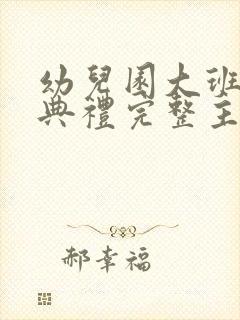 幼兒園大班
典禮完整主
郝幸福